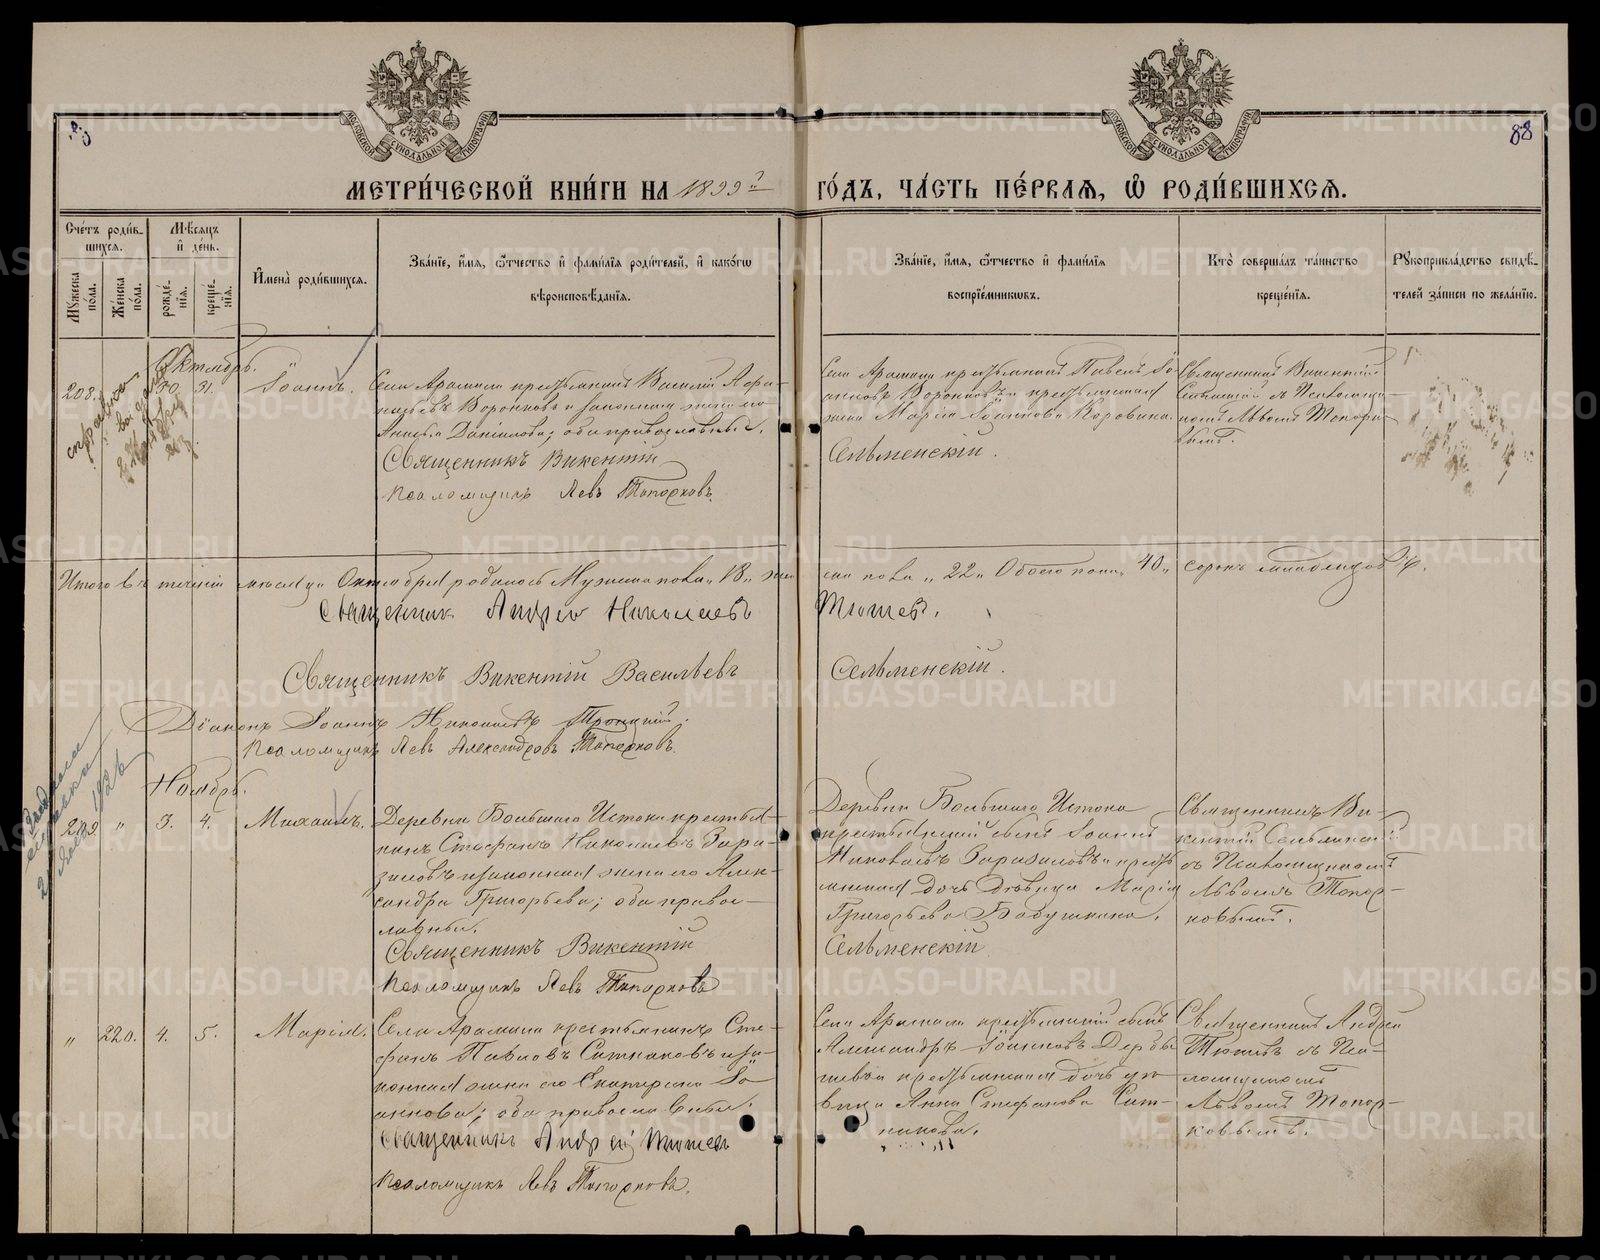 88
МОСКОВСКОЙ СѴНОДАЛЬНОЙ ТИПОГРАФІИ
МОСКОВСКОЙ СѴНОДАЛЬНОЙ ТИПОГРАФІИ
МЕТРИ́ЧЕСКОЙ КНИ́ГИ НА 1899 ГО́ДЪ, ЧА́СТЬ ПЕ́РВАЯ, Ѡ҆ РОДИ́ВШИХСЯ.
Сче́тъ роди́в-
шихся.
Мѣ́сяцъ
и҆ де́нь.
Му́жеска
по́ла.
Же́нска
по́ла.
рожде́-
нїя.
креще́-
нїя.
И҆мена̀ роди́вшихся.
Зва́нїе, и҆́мя, ѻ҆́тчество и҆ фами́лїя роди́телей, и҆ како́гѡ
вѣроисповѣ́данїя.
Зва́нїе, и҆́мя, ѻ҆́тчество и҆ фами́лїя
воспрїе́мникѡвъ.
Кто̀ соверша́лъ та́инство
креще́нїя.
Рукоприкла́дство свидѣ́-
телей за́писи по жела́нїю.
Октябрь.
208. 30. 31. Іоаннъ.
Села Арамили крестьянинъ Василій Аѳана-
сьевъ Воронковъ и законная жена его
Анисья Даніилова; оба православные.
Священникъ Викентій
Псаломщикъ Левъ Топорковъ.
Села Арамили крестьянинъ Павелъ Іо-
анновъ Воронковъ и крестьянская
жена Марія Іоаннова Коровина.
Сельменскій.
Священникъ Викентій
Сельменскій съ Псаломщи-
комъ Львомъ Топорко-
вымъ.
Итого въ теченіи мѣсяца Октября родилось Мужеска пола „18„ жен-
ска пола „22„ Обоего пола „40„ сорокъ младенцевъ
Священникъ Андрей Николаевъ Тюшевъ.
Священникъ Викентій Васильевъ Сельменскій.
Діаконъ Іоаннъ Николаевъ Троицкій.
Псаломщикъ Левъ Александровъ Топорковъ.
Ноябрь.
209 „ 3. 4. Михаилъ.
Деревни Большаго Истока крестья-
нинъ Стефанъ Николаевъ Зара-
зиловъ и законная жена его Алек-
сандра Григорьева; оба право-
славные.
Священникъ Викентій
Псаломщикъ Левъ Топорковъ
Деревни Большаго Истока
крестьянскій сынъ Іоаннъ
Николаевъ Заразиловъ и кресть-
янская дочь дѣвица Марія
Григорьева Бабушкина.
Сельменскій
Священникъ Ви-
кентій Сельменскій
съ Псаломщикомъ
Львомъ Топор-
ковымъ.
„ 220. 4. 5. Марія.
Села Арамили крестьянинъ Сте-
фанъ Павловъ Ситниковъ и за-
конная жена его Екатерина Іо-
аннова; оба православные.
Священникъ Андрей Тюшевъ
Псаломщикъ Левъ Топорковъ.
Села Арамили крестьянскій сынъ
Александръ Іоанновъ Дербы-
шевъ и крестьянская дочь дѣ-
вица Анна Стефанова Сит-
никова.
Священникъ Андрей
Тюшевъ съ Пса-
ломщикомъ
Львомъ Топор-
ковымъ.